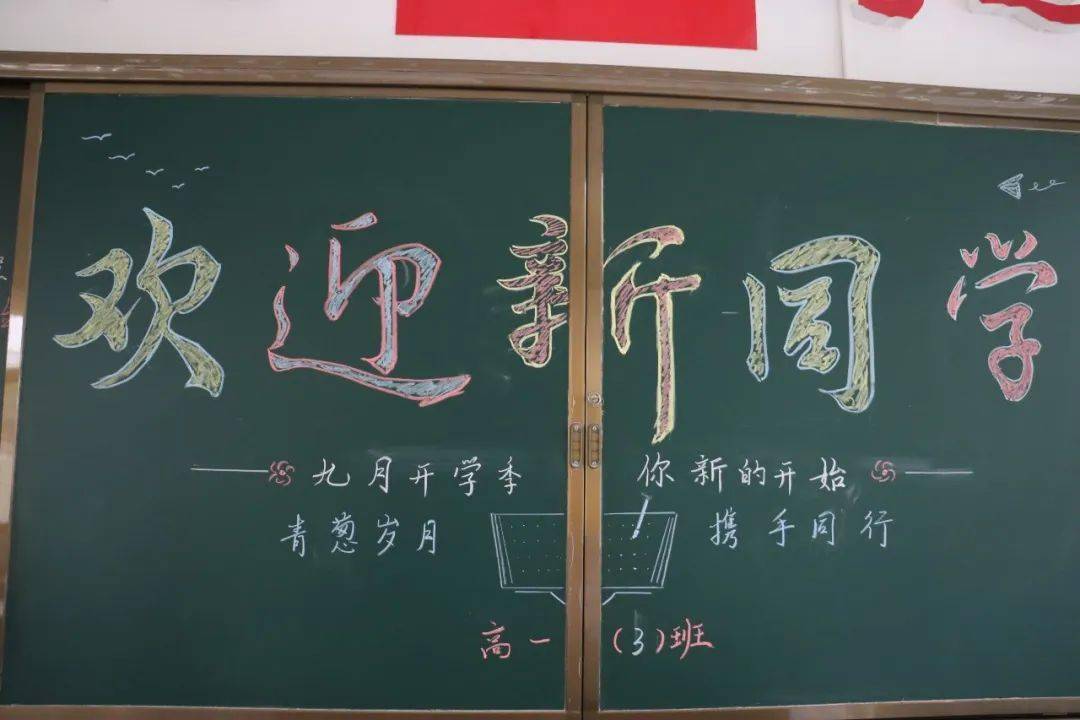 欢迎新同学
九月开学季 你新的开始
青葱岁月 携手同行
高一(3)班